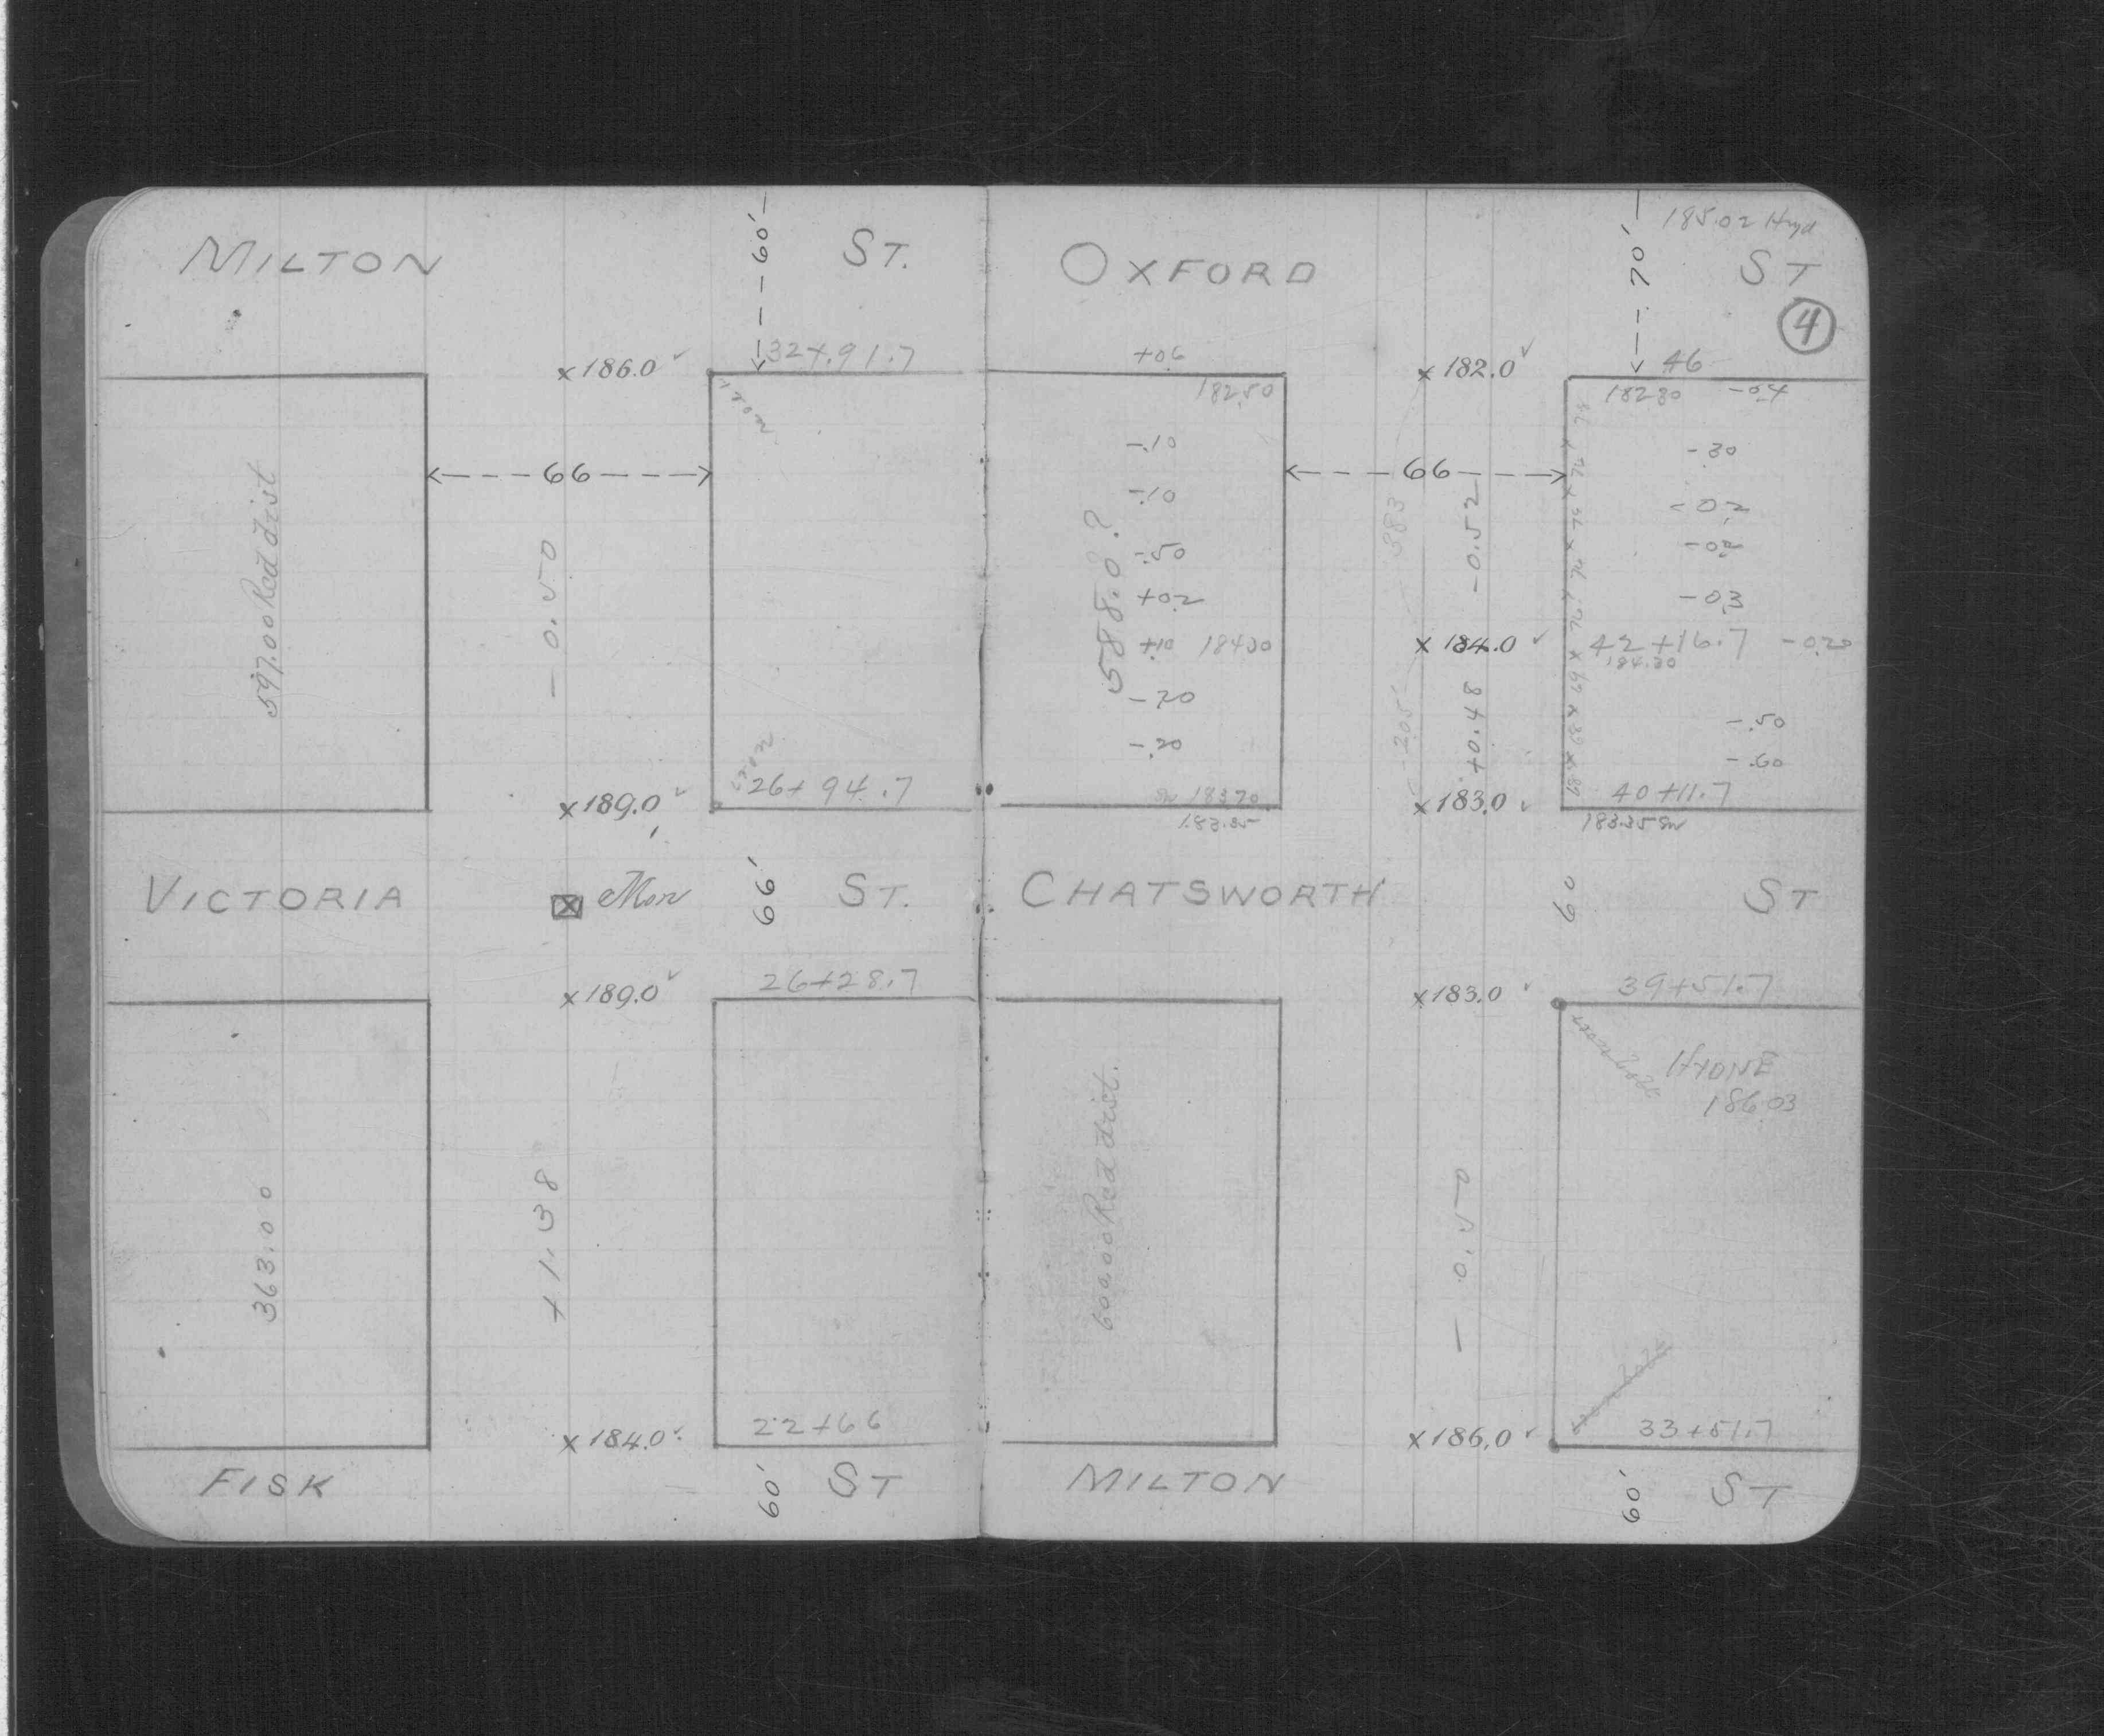 MILTON ST.
60'
32+91.7
x 186.0 ✓
<---66--->
597.00 Rec'd dist
- 0.50
x 189.0 ✓
26+94.7
VICTORIA ST.
Mon
66'
x 189.0 ✓
26+28.7
363.00
+ 1.38
x 184.0 ✓
22+66
FISK ST
60'
185.02 Hyd
OXFORD ST
70'
4
+06
x 182.0 ✓
46
182.50
182.80 -0.4
-.10
-.30
<---66--->
-.10
-02
-.50
+0.2
-0.3
588.0?
383
-0.52
+.10 184.30
x 184.0 ✓
42+16.7 -0.20
184.20
-.20
-.50
-.20
-.60
205
+0.48
SW 183.70
x 183.0 ✓
40+11.7
183.35
183.35 SW
CHATSWORTH ST
60
x 183.0 ✓
39+51.7
HYDNE
186.03
600.00 Rec'd dist.
- 0.50
x 186.0 ✓
33+51.7
MILTON ST
60'